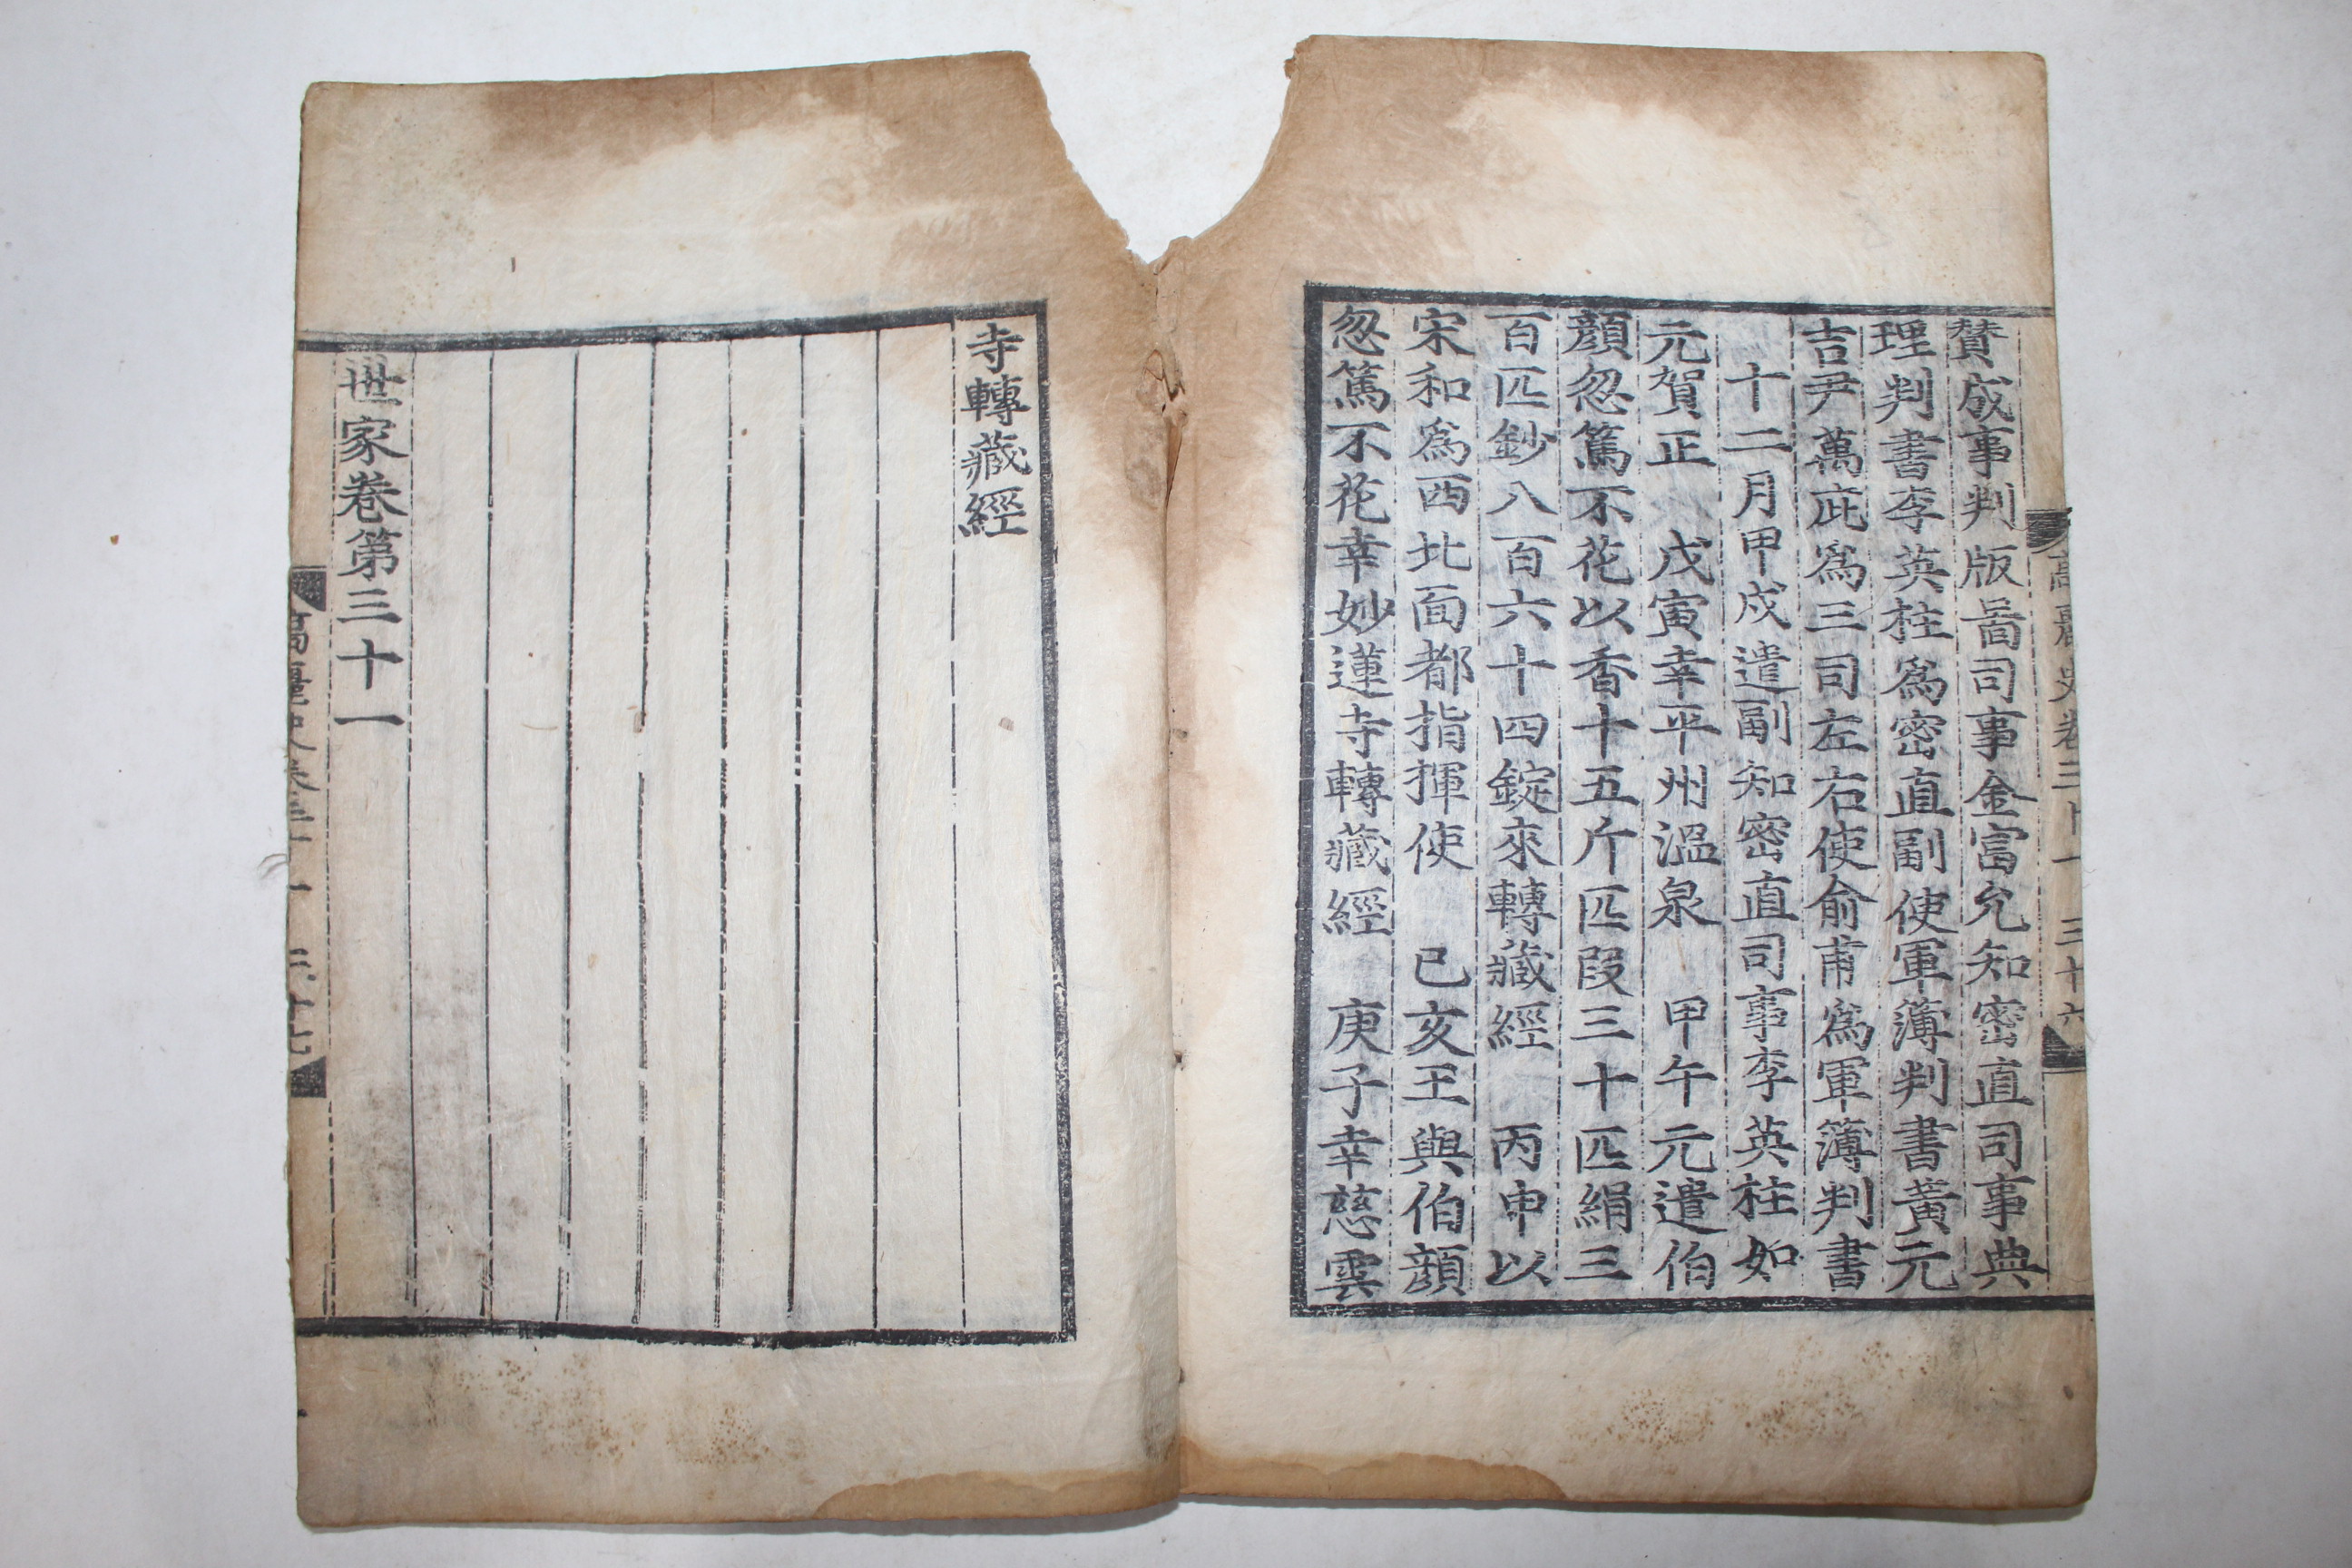 高麗史卷三十一 三十六
贊成事判版圖司事金富允知密直司事典
理判書李英柱爲密直副使軍簿判書黃元
吉尹萬庇爲三司左右使俞甫爲軍簿判書
十二月甲戌遣副知密直司事李英柱如
元賀正 戊寅幸平州溫泉 甲午元遣伯
顔忽篤不花以香十五斤匹段三十匹絹三
百匹鈔八百六十四錠來轉藏經 丙申以
宋和爲西北面都指揮使 己亥王與伯顔
忽篤不花幸妙蓮寺轉藏經 庚子幸慈雲
寺轉藏經
世家卷第三十一
高麗史卷三十一 三十七